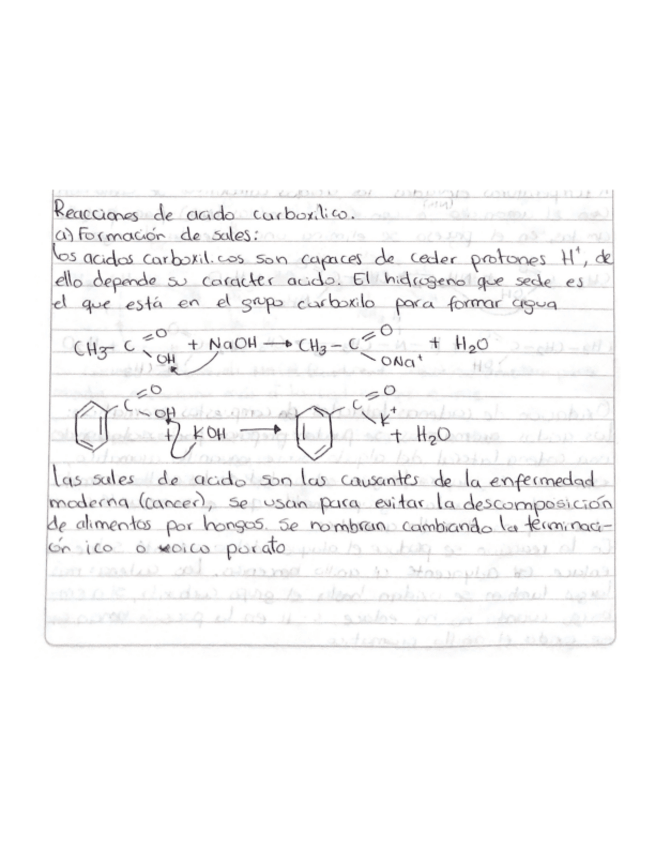 Reacciones de acido carboxilico.
a) Formación de sales:
los acidos carboxilicos son capaces de ceder protones H⁺, de
ello depende su caracter acido. El hidrogeno que sede es
el que está en el grupo carboxilo para formar agua
CH3 - C =O OH + NaOH → CH3 - C =O ONa⁺ + H2O
C =O OH + KOH → C =O K⁺ + H2O
las sales de acido son las causantes de la enfermedad
moderna (cancer), se usan para evitar la descomposición
de alimentos por hongos. Se nombran cambiando la terminaci-
ón ico o oico por ato